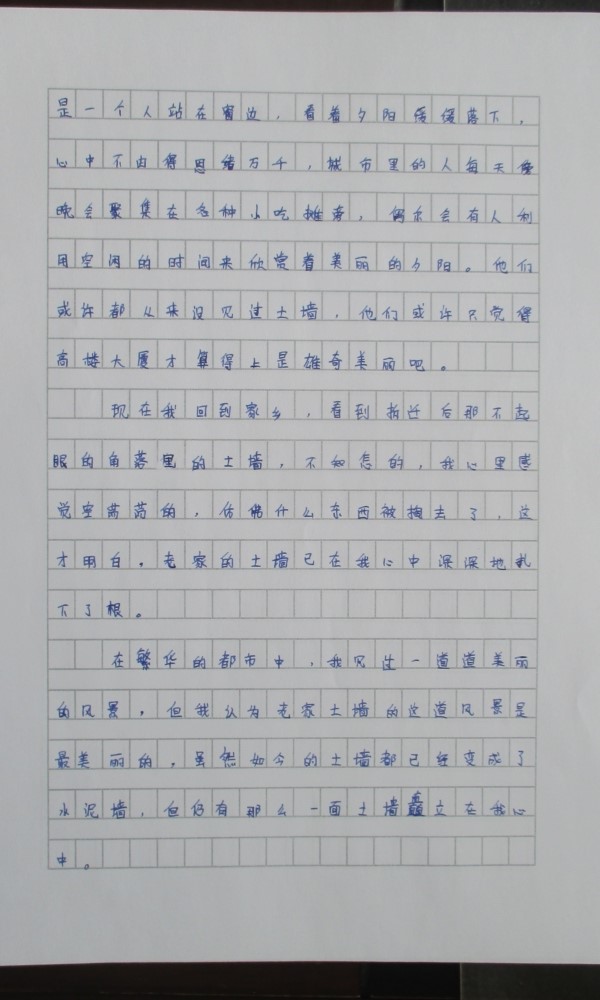 是一个人站在窗边，看着夕阳缓缓落下，
心中不由得思绪万千，城市里的人每天傍
晚会聚集在各种小吃摊旁，偶尔会有人利
用空闲的时间来欣赏着美丽的夕阳。他们
或许都从来没见过土墙，他们或许只觉得
高楼大厦才算得上是雄奇美丽吧。
现在我回到家乡，看到拆迁后那不起
眼的角落里的土墙，不知怎的，我心里感
觉空荡荡的，仿佛什么东西被掏去了，这
才明白，老家的土墙已在我心中深深地扎
下了根。
在繁华的都市中，我见过一道道美丽
的风景，但我认为老家土墙的这道风景是
最美丽的，虽然如今的土墙都已经变成了
水泥墙，但仍有那么一面土墙矗立在我心
中。